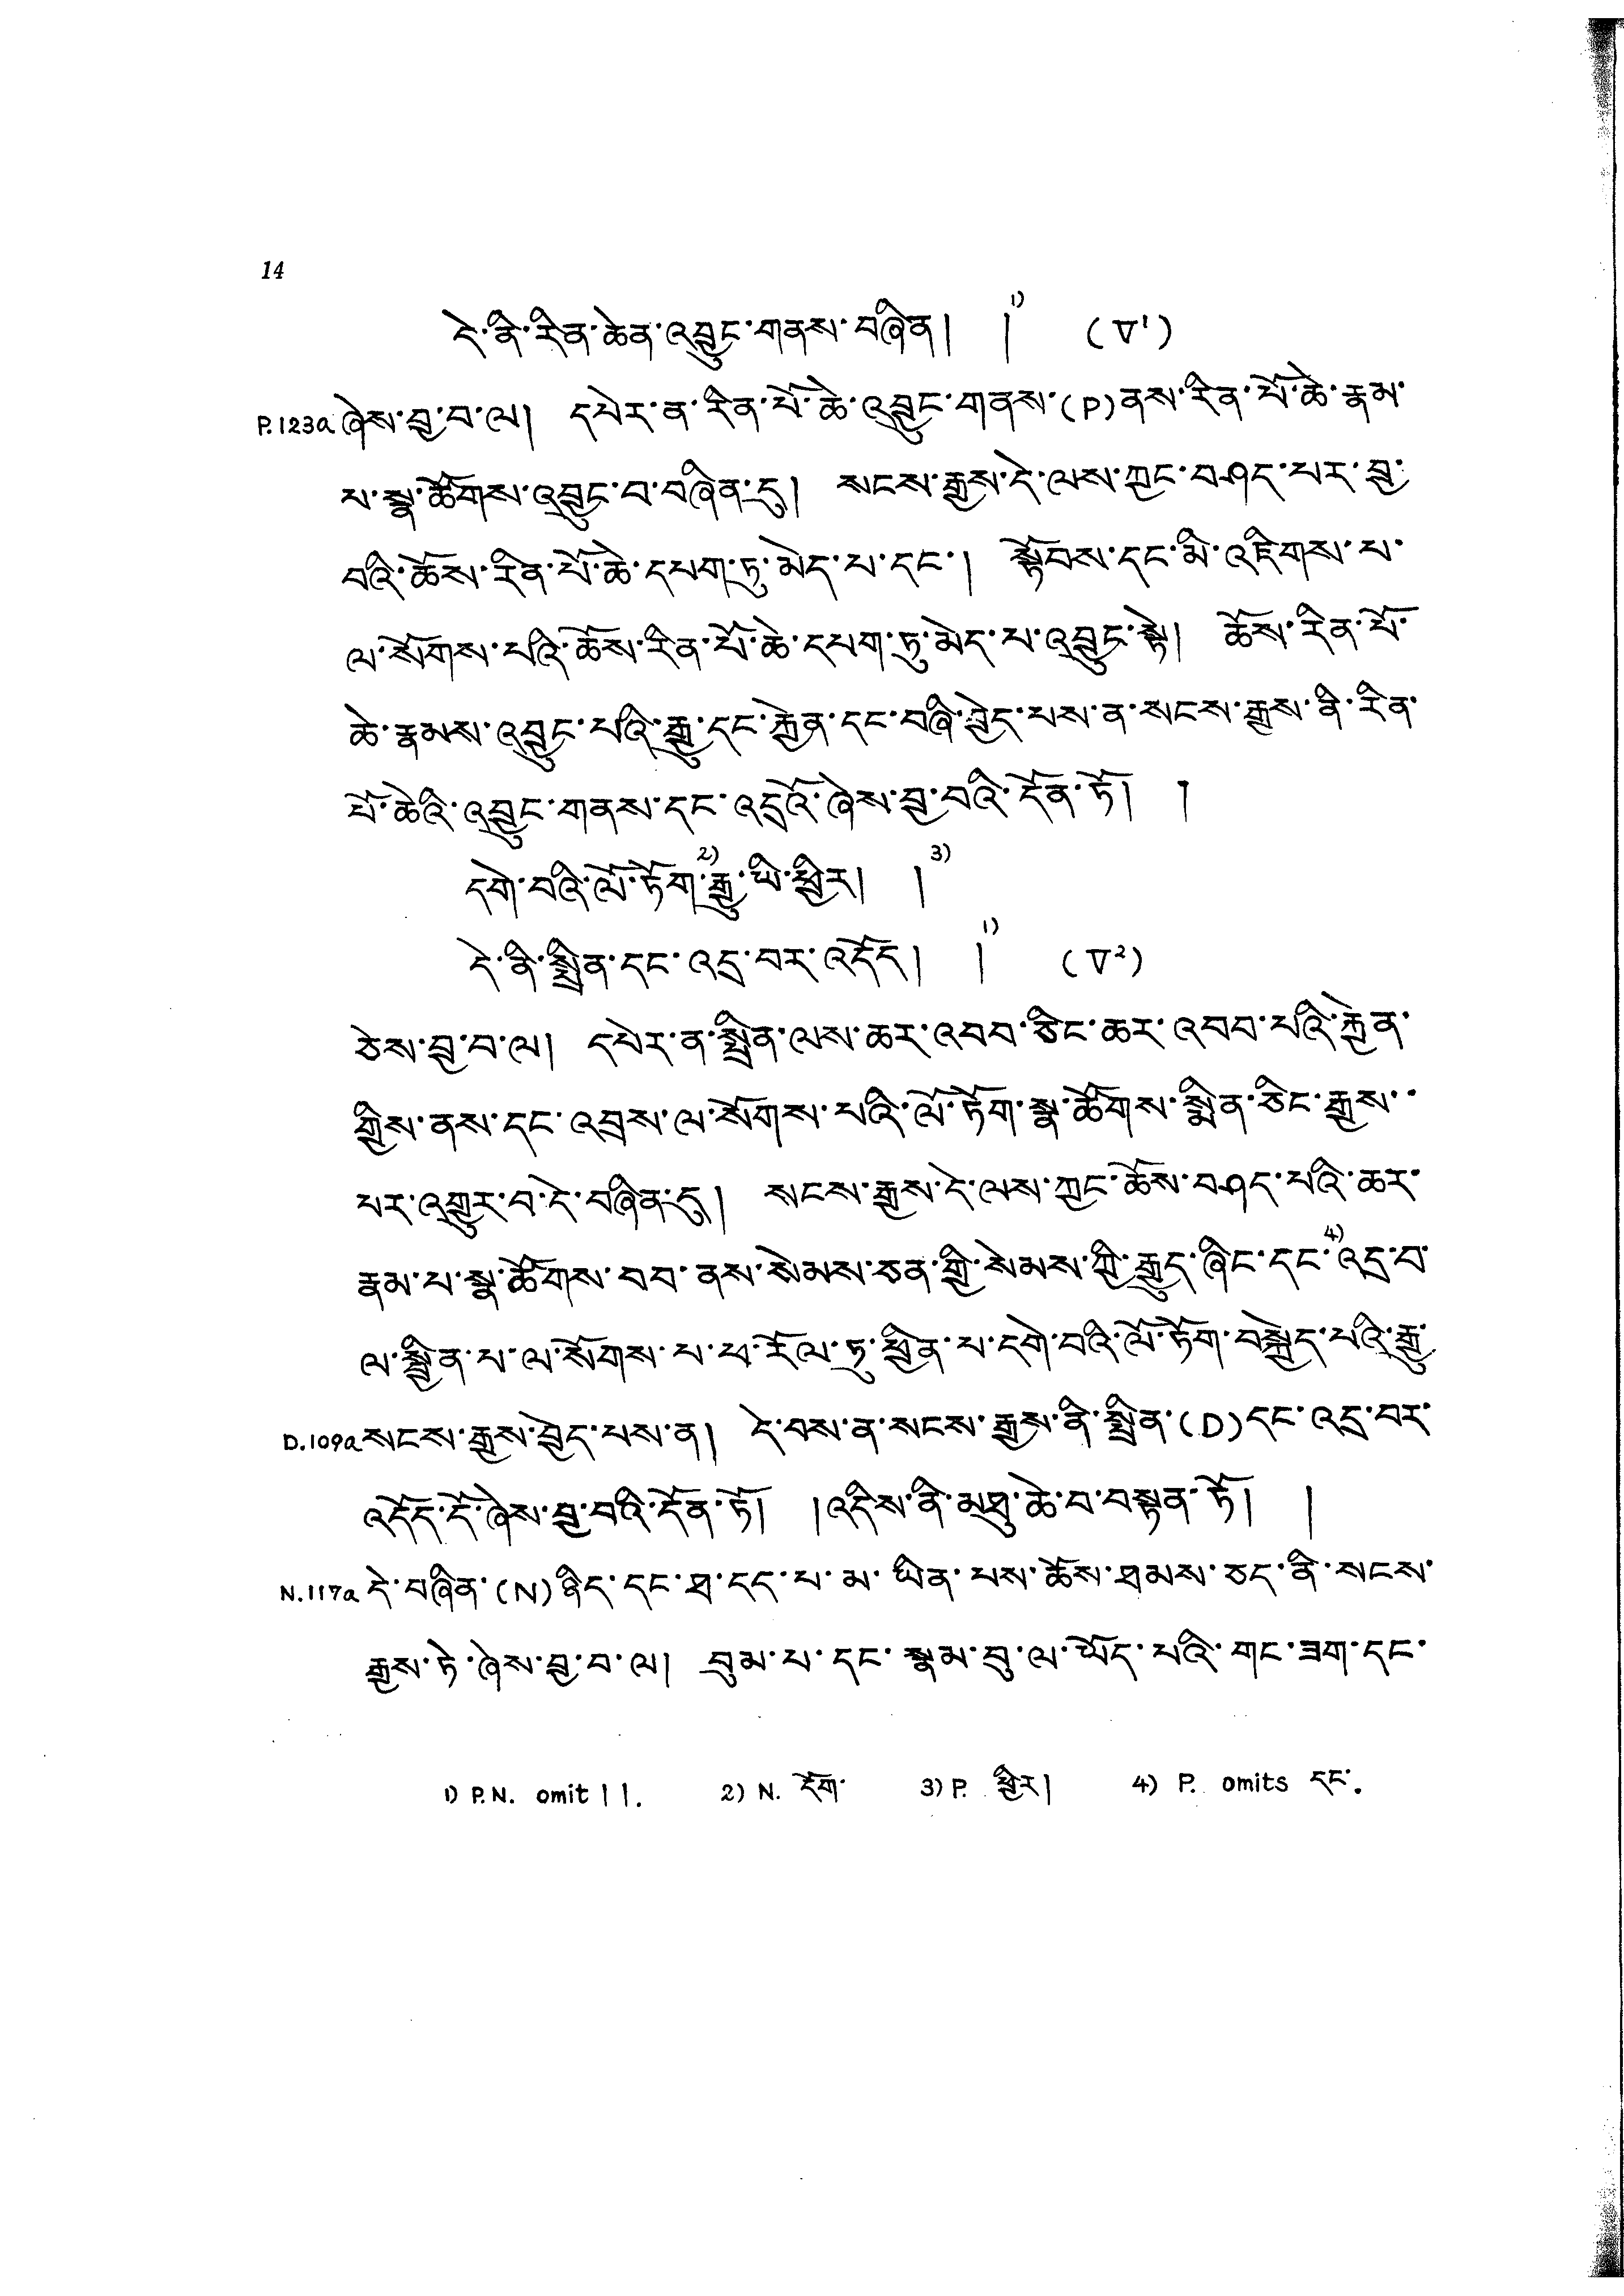 14
དེ་ནི་རིན་ཆེན་འབྱུང་གནས་བཞིན། །1) (V¹)
P.123a ཞེས་བྱ་བ་ལ། དཔེར་ན་རིན་པོ་ཆེ་འབྱུང་གནས་(P)ནས་རིན་པོ་ཆེ་རྣམ་
པ་སྣ་ཚོགས་འབྱུང་བ་བཞིན་དུ། སངས་རྒྱས་དེ་ལས་ཀྱང་བཤད་པར་བྱ་
བའི་ཆོས་རིན་པོ་ཆེ་དཔག་ཏུ་མེད་པ་དང་། སྟོབས་དང་མི་འཇིགས་པ་
ལ་སོགས་པའི་ཆོས་རིན་པོ་ཆེ་དཔག་ཏུ་མེད་པ་འབྱུང་སྟེ། ཆོས་རིན་པོ་
ཆེ་རྣམས་འབྱུང་པའི་རྒྱུ་དང་རྐྱེན་དང་བཞི་བྱེད་པས་ན་སངས་རྒྱས་ནི་རིན་
པོ་ཆེའི་འབྱུང་གནས་དང་འདྲའོ་ཞེས་བྱ་བའི་དོན་ཏོ། །
དགེ་བའི་ལོ་ཏོག་2)རྒྱུ་ཡི་ཕྱིར། །3)
དེ་ནི་སྤྲིན་དང་འདྲ་བར་འདོད། །1) (V²)
ཅེས་བྱ་བ་ལ། དཔེར་ན་སྤྲིན་ལས་ཆར་འབབ་ཅིང་ཆར་འབབ་པའི་རྐྱེན་
གྱིས་ནས་དང་འབྲས་ལ་སོགས་པའི་ལོ་ཏོག་སྣ་ཚོགས་སྨིན་ཅིང་རྒྱས་་
པར་འགྱུར་བ་དེ་བཞིན་དུ། སངས་རྒྱས་དེ་ལས་ཀྱང་ཆོས་བཤད་པའི་ཆར་
རྣམ་པ་སྣ་ཚོགས་བབ་ནས་སེམས་ཅན་གྱི་སེམས་ཀྱི་རྒྱུད་ཞིང་དང་4)འདྲ་བ་
ལ་སྦྱིན་པ་ལ་སོགས་པ་ཕ་རོལ་ཏུ་ཕྱིན་པ་དགེ་བའི་ལོ་ཏོག་བསྐྱེད་པའི་རྒྱུ་
D.109a སངས་རྒྱས་བྱེད་པས་ན། དེ་བས་ན་སངས་རྒྱས་ནི་སྤྲིན་(D)དང་འདྲ་བར་
འདོད་དོ་ཞེས་བྱ་བའི་དོན་ཏོ། །འདིས་ནི་མཐུ་ཆེ་བ་བསྟན་ཏོ། །
N.117a དེ་བཞིན་(N)ཉིད་དང་ཐ་དད་པ་མ་ཡིན་པས་ཆོས་ཐམས་ཅད་ནི་སངས་
རྒྱས་ཏེ་ཞེས་བྱ་བ་ལ། བུམ་པ་དང་སྣམ་བུ་ལ་ཡོད་པའི་གང་ཟག་དང་
1) P.N. omit ། །. 2) N. དོག་ 3) P. ཕྱིར། 4) P. omits དང་.